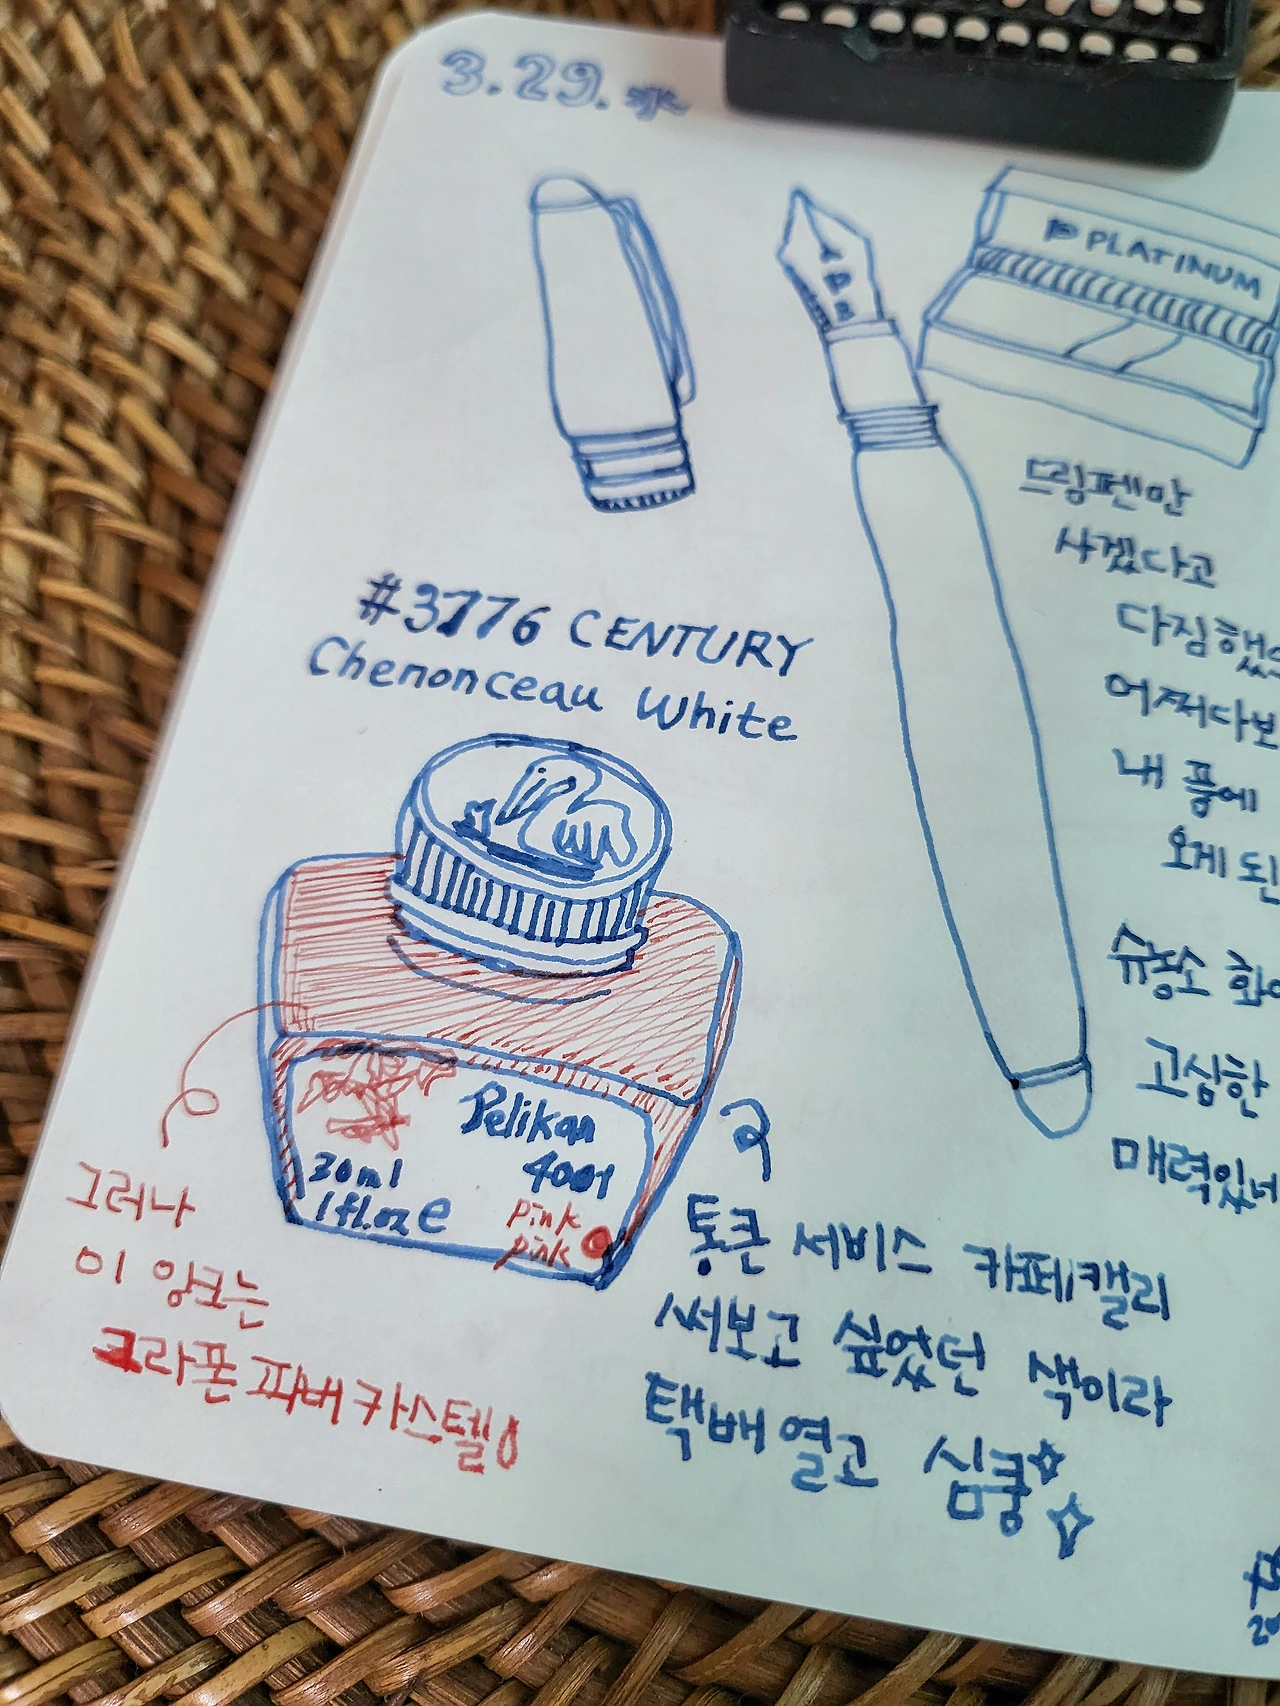 3.29. 水
PLATINUM
드림펜만
사겠다고
다짐했
어쩌다보
내 품에
오게 된
#3776 CENTURY
Chenonceau White
슈농소 화이
고심한
매력있네
Pelikan
4001
30ml
1fl.oz e
pink
pink
그러나
이 잉크는
그라폰 파버카스텔!
통큰 서비스 카페캘리
써보고 싶었던 색이라
택배 열고 심쿵